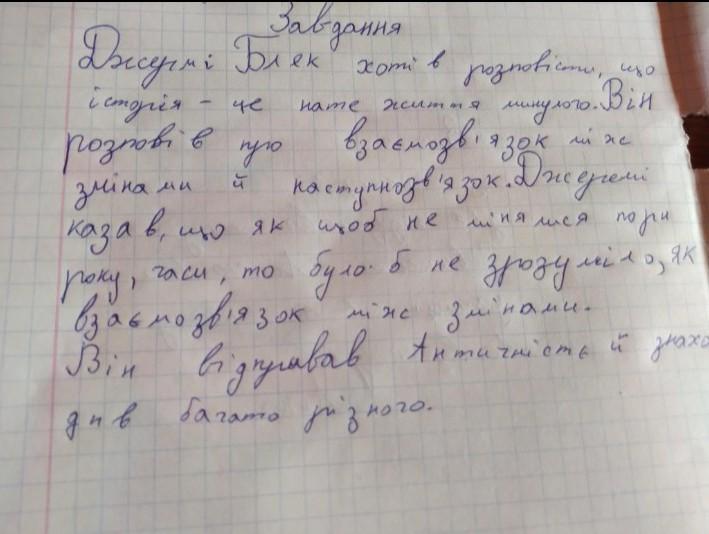 Завдання
Джермі Бляк хотів розповісти, що
історія - це пате життя минулого. Він
розповів про взаємозв'язок між
змінами й наступнозв'язок. Джеремі
казав, що як щоб не мінялися пори
року, часи, то було б не зрозуміло, як
взаємозв'язок між змінами.
Він відкривав Античність й знахо
див багато різного.